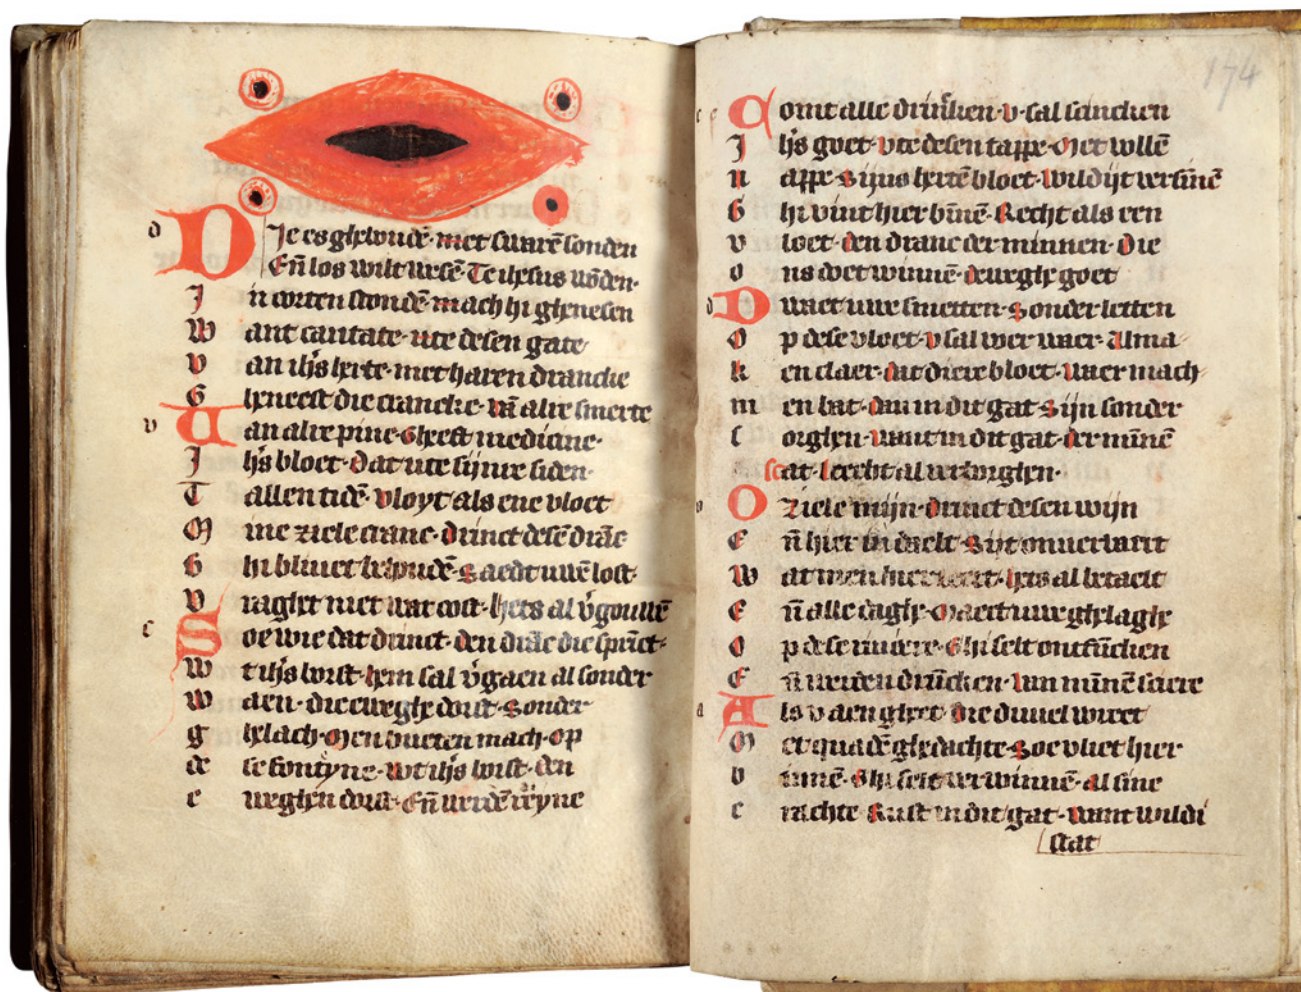 d DIe es ghewūdē·met swarē sonden
Eñ los wilt wesē·Te ihesus wōden·
In corten stondē·mach hi ghenesen
Want caritate·ute desen gate
van ihs herte·met haren drancke
Gheneest die crancke·vā alre smerte
v Van alre pine·Gheeft medicine·
Ihs bloet·Dat ute sijnre siden·
Tallen tidē·vloyt als ene vloet
Mine ziele cranc·drinct desē drāc
Ghi blivet behoudē·saedt uwē lost·
vraghet niet wat cost·hets al v̄gouwē
s Soe wie dat drinct·den drāc die sprīct·
Wt ihs borst·hem sal v̄gaen al sonder
Waen·die eweghe dorst·sonder
ghelach·Men drincken mach·op
dese fonteyne·wt ihs borst·den
eweghen dorst·Eñ werdē reyne
174
c Comt alle drinken·v·sal scincken
Ihs goet·vte desen tappe·Met vollē
nappe·sijns hertē bloet·wildijt versinē
Ghi vint hier binē·Recht als een
vloet·den dranc der minnen·Die
ons doet winnē·deweghe goet
d Dwaet uwe smetten·sonder letten
Op dese vloet·v sal wer waer·Al ma
ken claer·dat diere bloet·waer mach
men bat·dan in dit gat·sijn sonder
sorghen·want in dit gat·der minnē
scat·leecht al verborghen·
o O ziele mijn·drinct desen wijn
Eñ hier in daelt·sijt onuervaert
Wat men hier teert·hets al betaelt
Eñ alle daghe·Maect uwe ghelaghe
Op dese riuiere·Ghi selt ontfūcken
Eñ werden drūcken·van minnē sciere
a Als v aen gheet·die duuel wreet
Met quadē ghedachte·soe vliet hier
binnē·Ghi selt verwinnē·al sine
crachte·Rust in dit gat·want wildi
stat